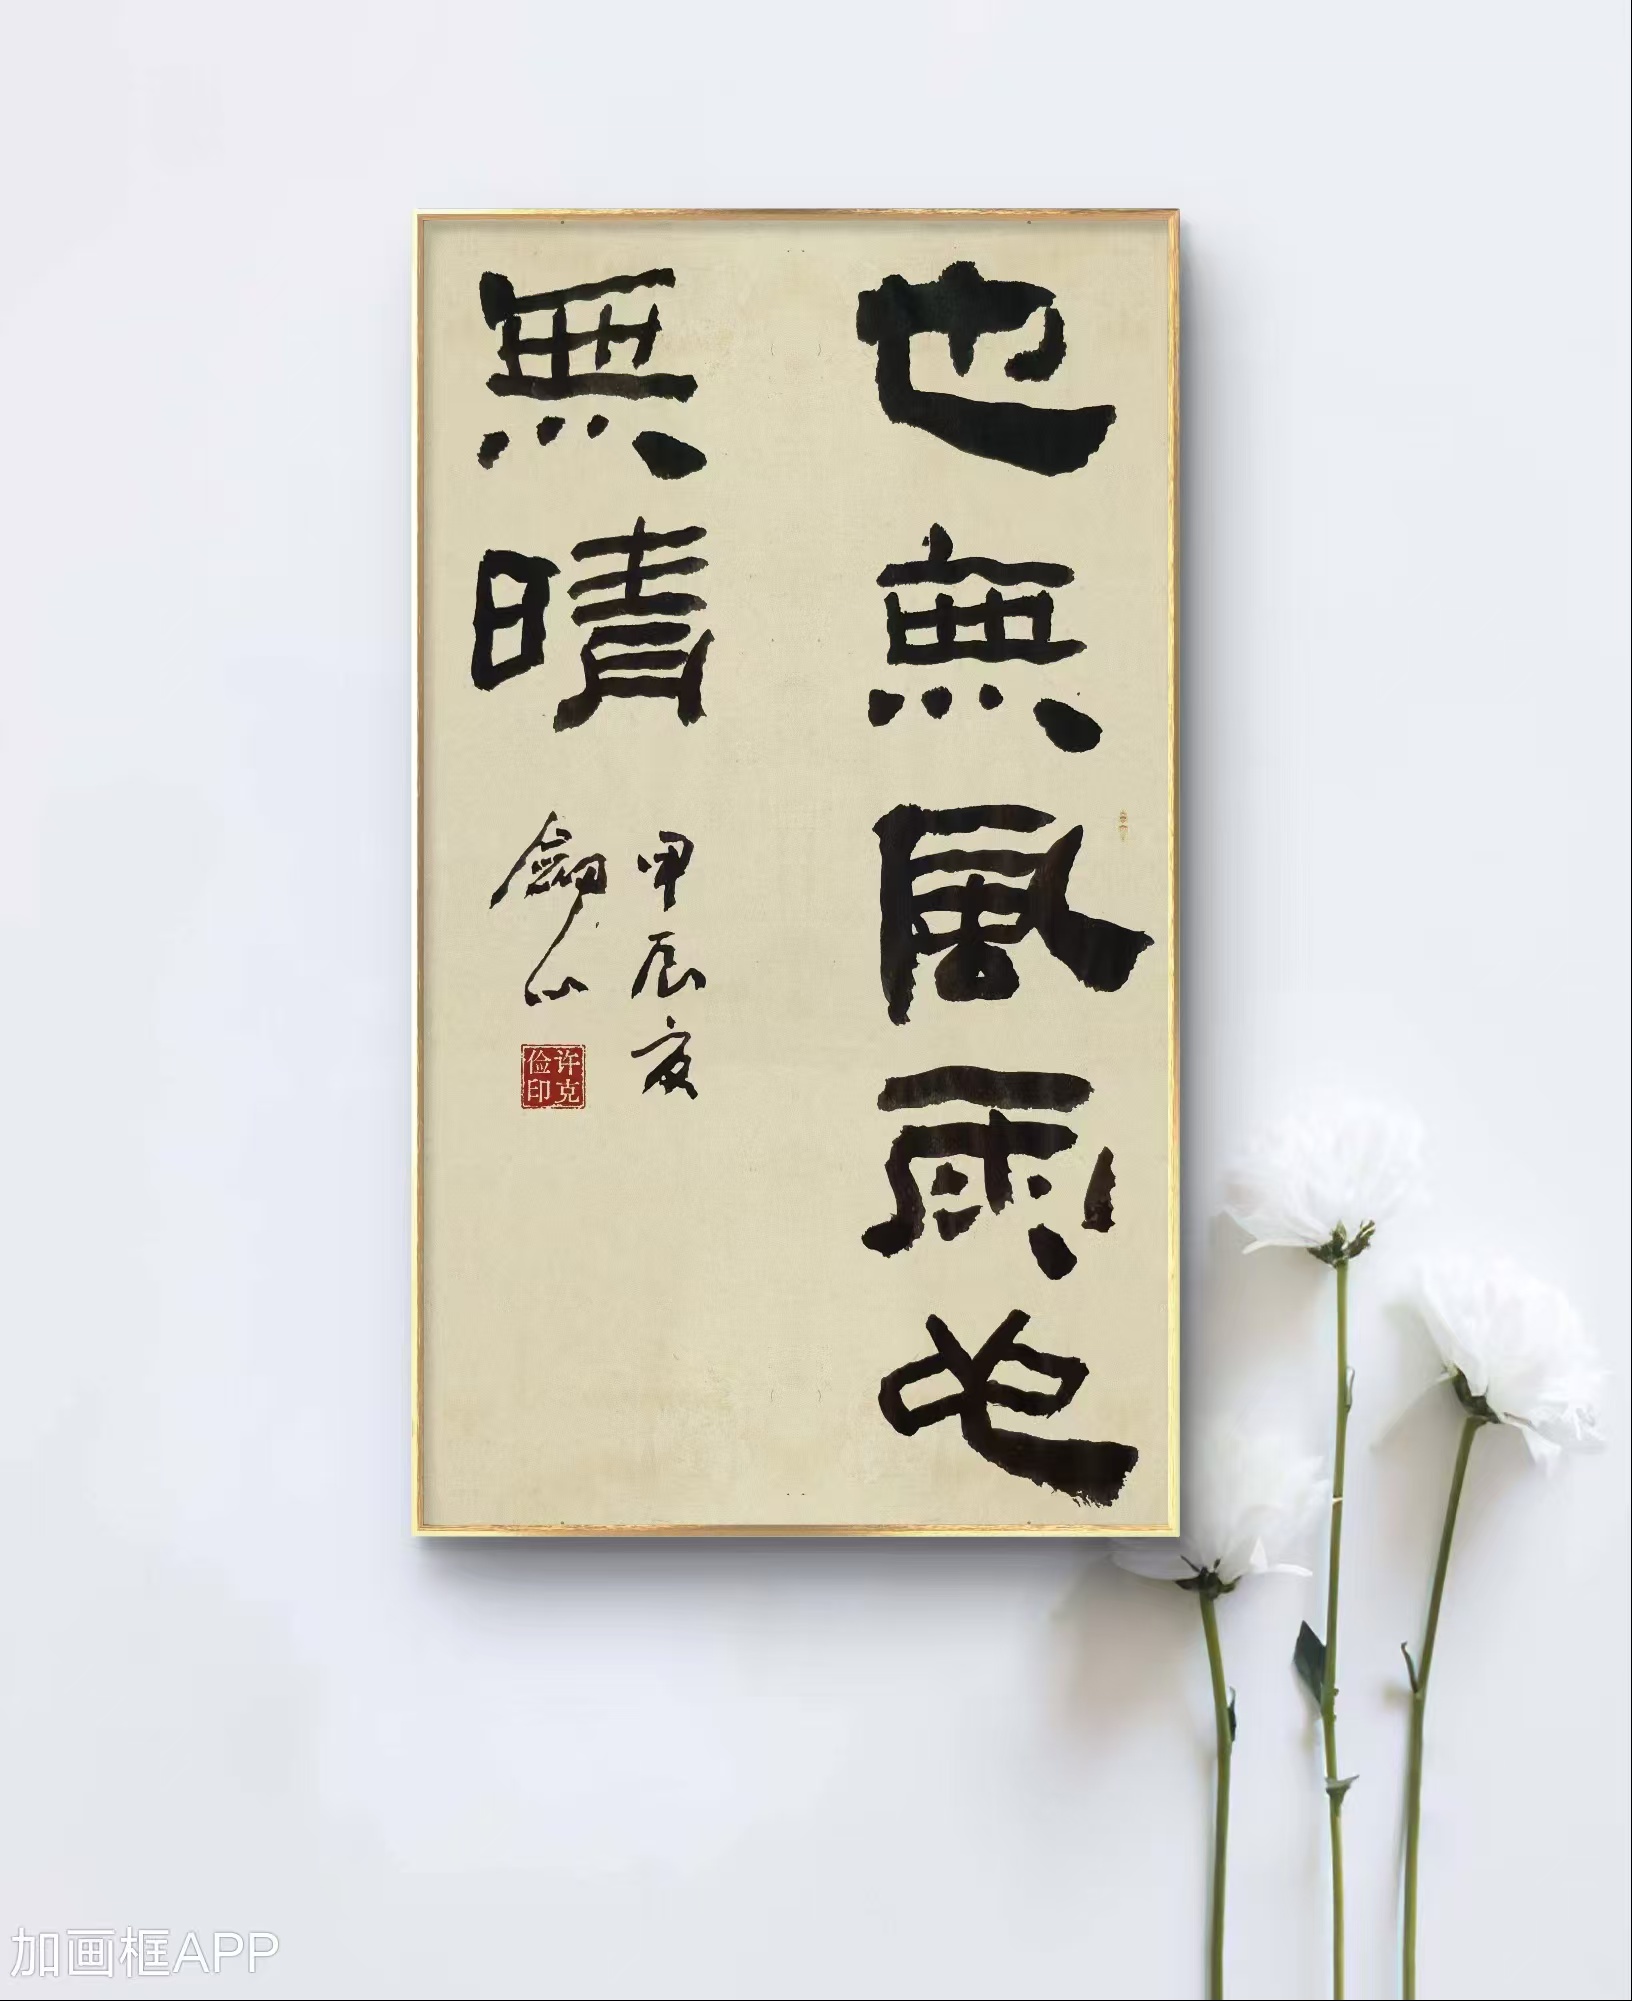 也無風雨也
無晴
甲辰夏
劍山
许克
俭印
加画框APP